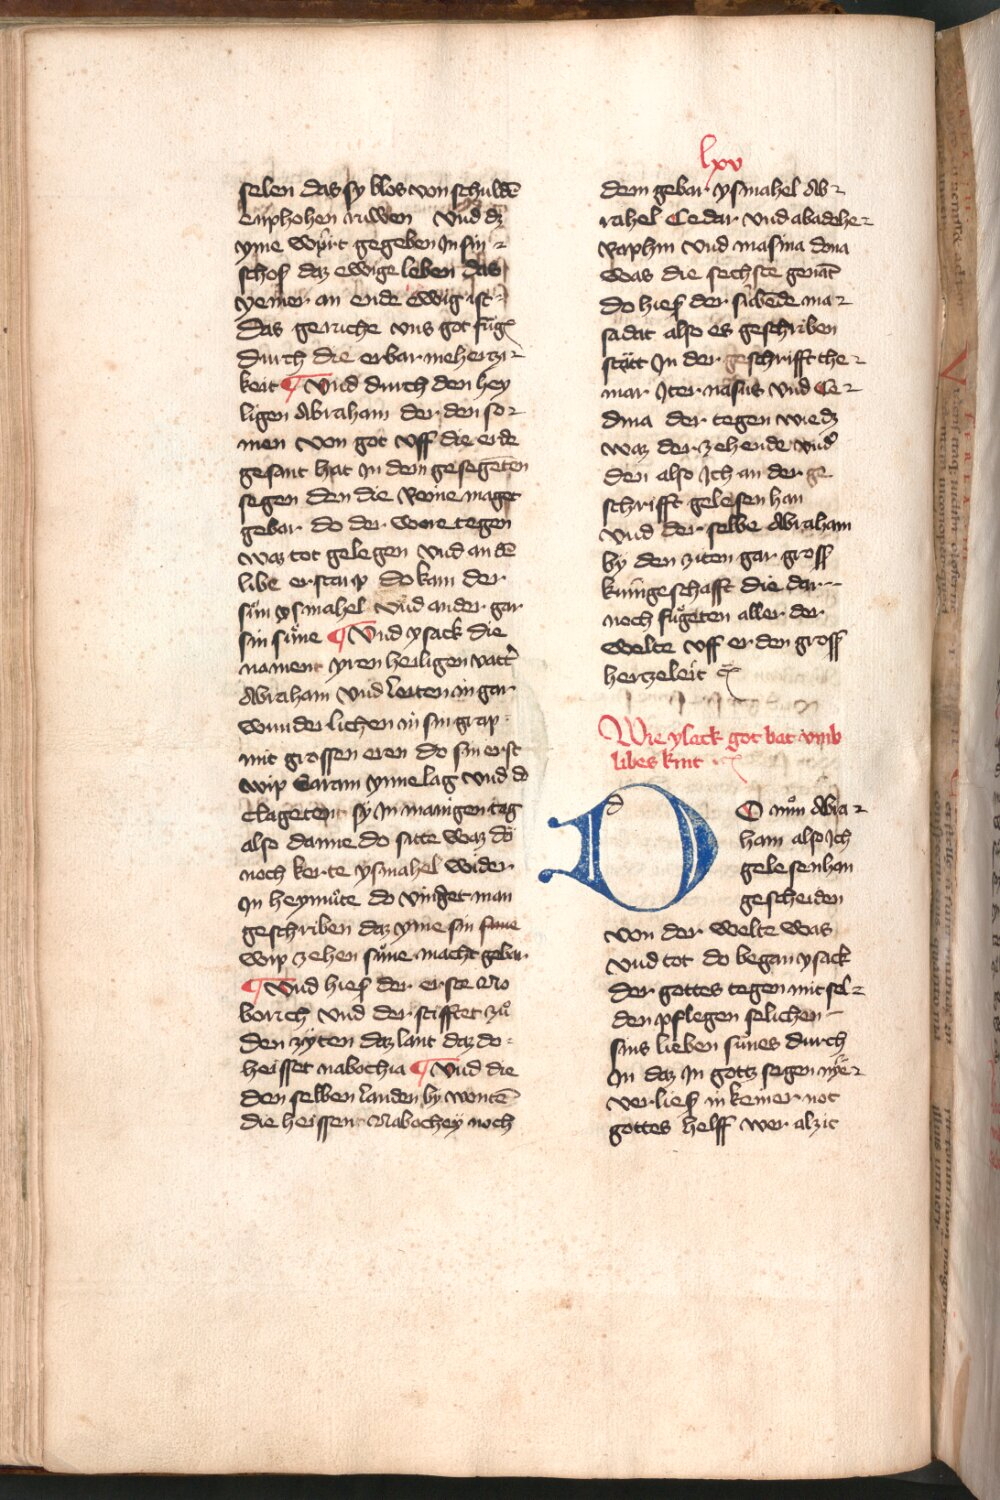 selen das sy blos von schuldē
enphohen ruwen Vnd dz
yme wp̄rt gegeben In sin
schos daz ewige leben das
yemer an ende ewig ist
Das geruche vns got fůg
durch die erbarmehertzi
keit ¶ Vnd durch den hey
ligen Abraham der den so
men von got vff die erde
gesant hat in dem gesegēten
segen den die Reine maget
gebar do der were tegen
was tot gelegen Vnd an dē
libe erstarp do kam der
sůn ysmahel Vnd ander gar
sin sůne ¶ Vnd ysack die
noment yren heiligen vatt͛
Abraham Vnd leiten in gar
wunderlichen in sin grap
mit grossen eren do sin erst
wip Saram ynne lag Vnd d
clageten sy In manigen tag
also danne do sitte waz do
noch kerte ysmahel wider
In heymůte do vindet man
geschriben daz yme sin sune
wip zehen sůne macht gebar
¶ Vnd hies der erste No
borrch Vnd der stifftet zů
den zyten daz lant daz do
heisset nabochia ¶ Vnd die
den selben landen by wontē
die heissent Nabochey noch
lxv
dem gebar ysmahel Ab
rahel Cedar Vnd abadehe
Raphim Vnd masma dona
was die sechste genāt
do hies der sibēde ma
sadat also es geschriben
stątt In der geschrifft the
mar Iter nasus Vnd Ce
dma der tegen wie dz
waz der zehende vnd͛
den also Ich an der ge
schrifft gelesen han
Vnd der selbe Abraham
by den ziten gar gross
kunigeschafft die dar
noch fůgeten aller der
welte vff erden gross
hertzeleit
Wie ysack got bat vmb
libes kint
DO nůn Abra
ham also Ich
gelesen han
gescheiden
von der welte was
Vnd tot do began ysack
der gottes tegen mit sel
den pflegen selichen
sins lieben sůnes durch
In daz In gottz segen nye
verlies in keiner not
gottes helff wer alzit